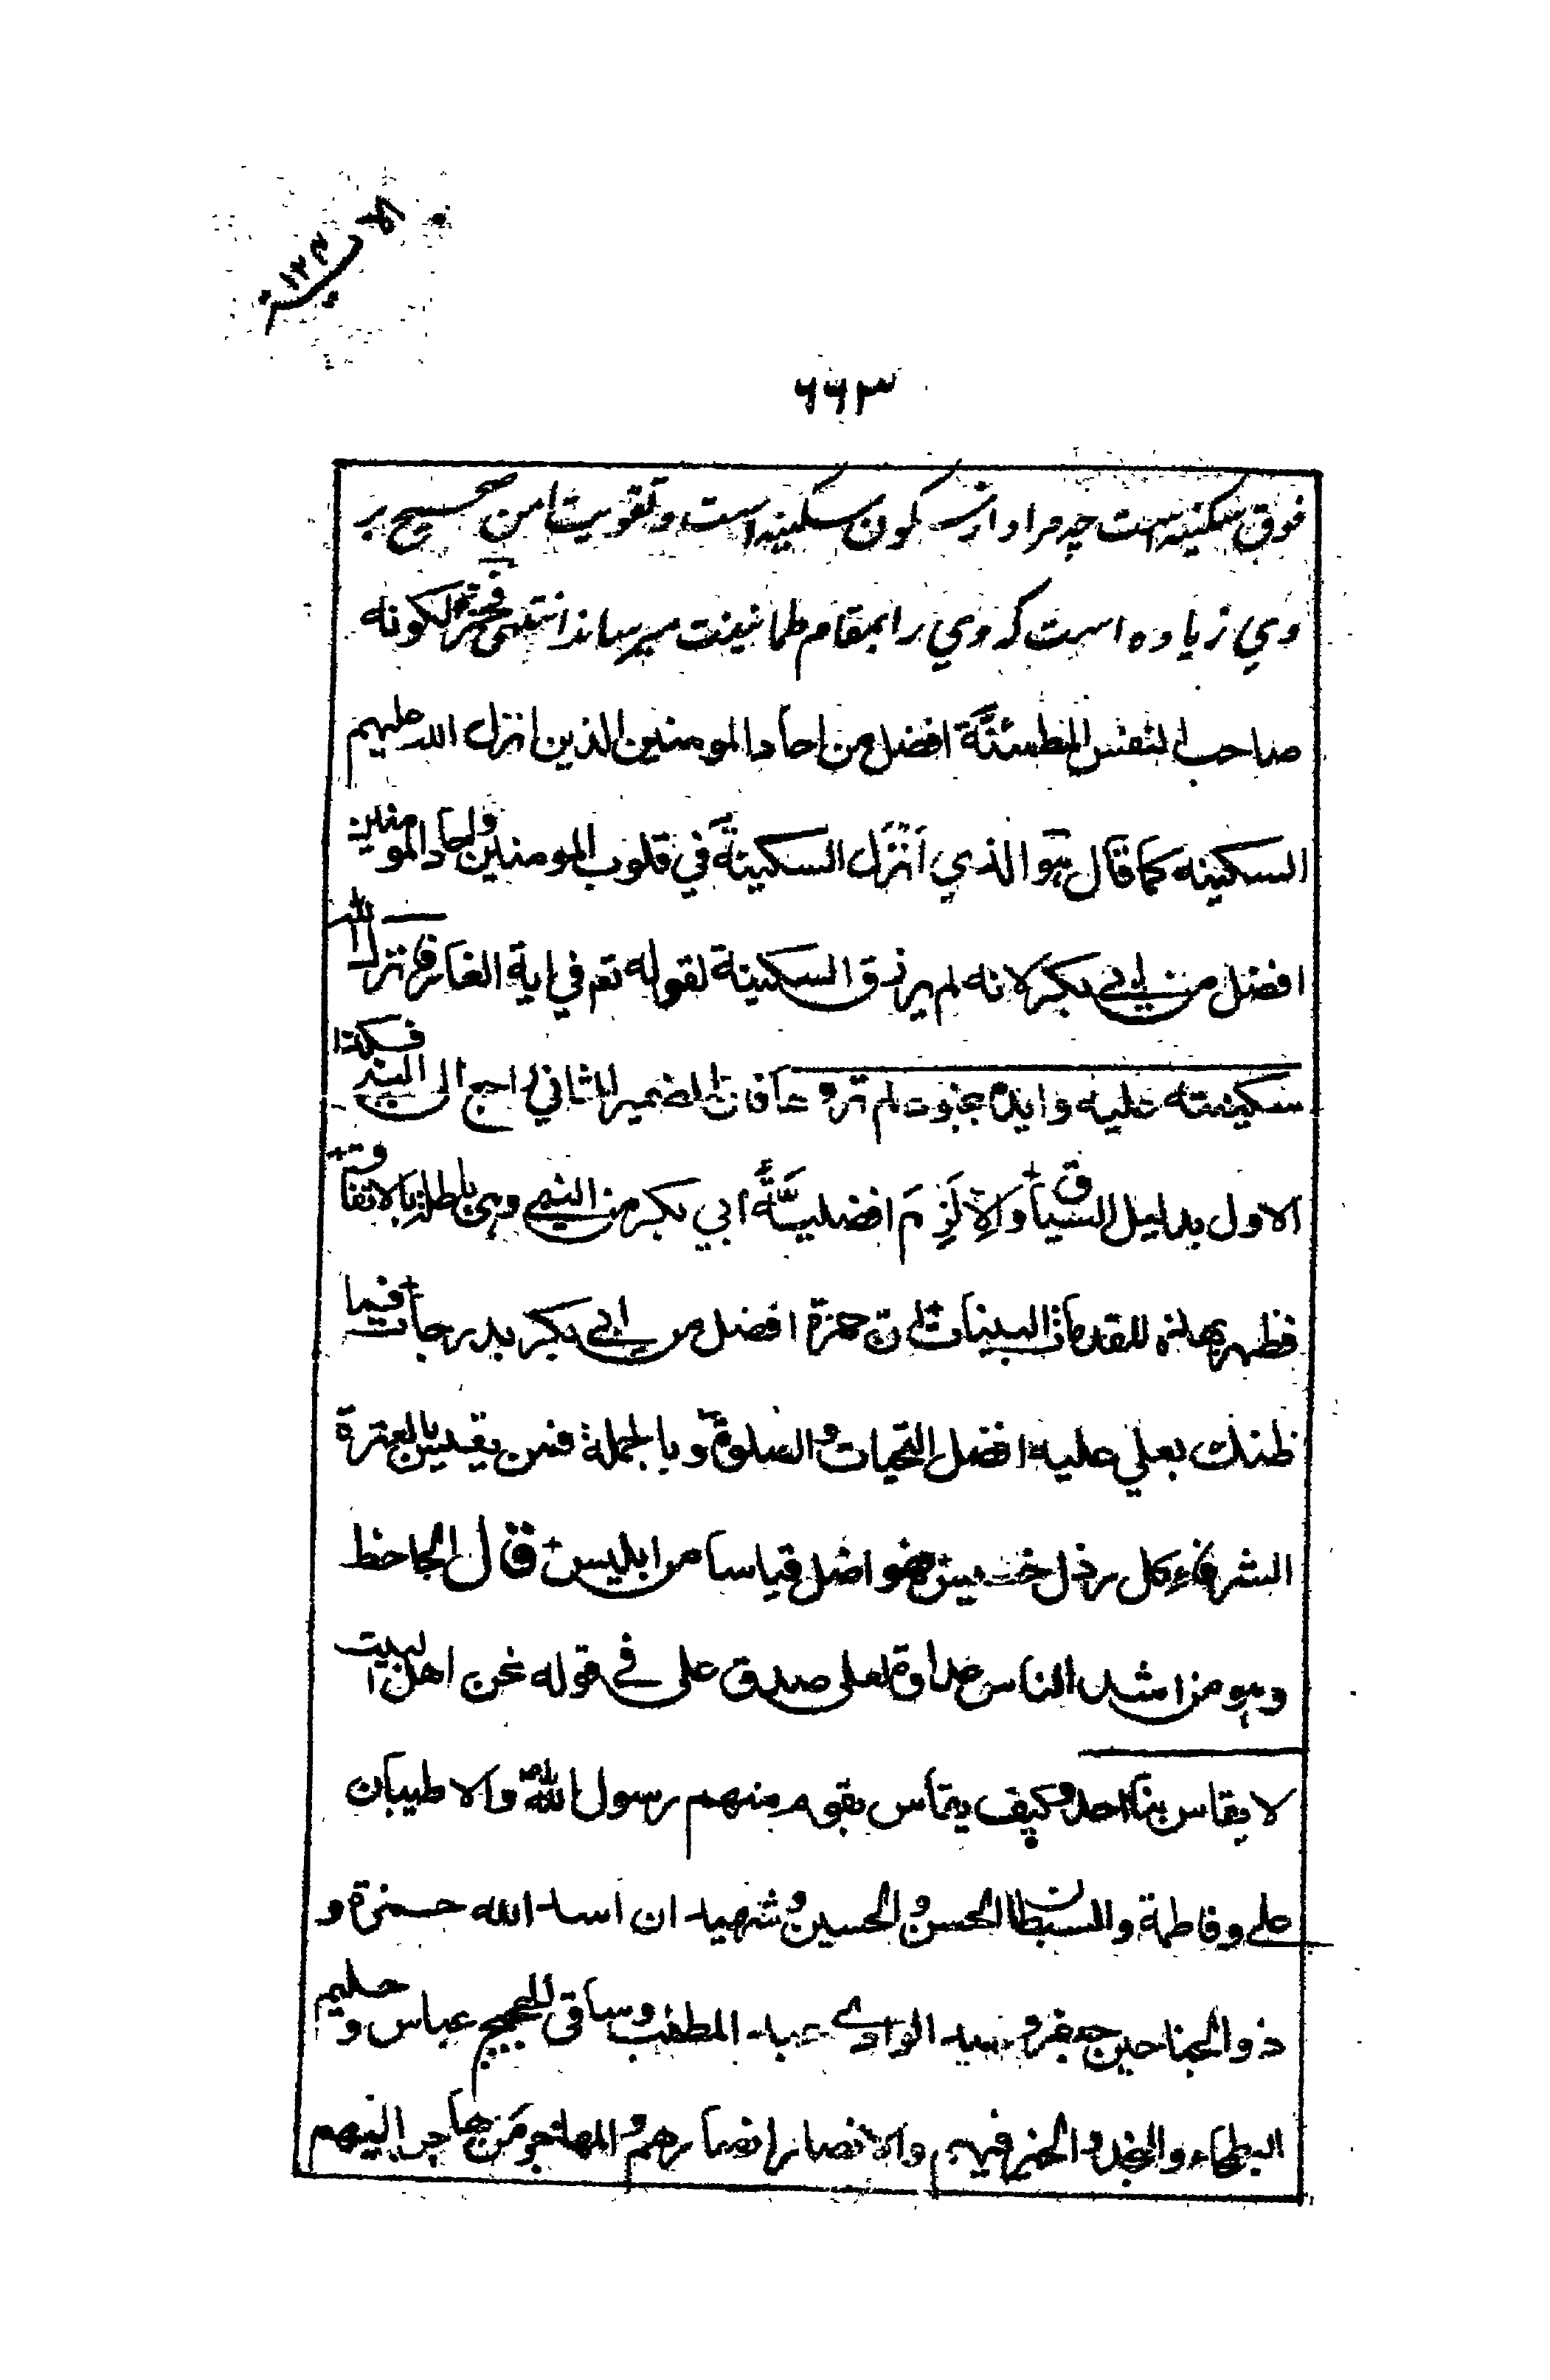 ٦٦٣
فوق سکینه است چه مراد ازن سکون سکینه است و تقویت امن صحیح بر
وی زیاده است که وی را بمقام طمانینت میرساند انتهی فحمزة لکونه
صاحب النفس المطمئنّة افضل من احاد المومنین الذین انزل الله علیهم
السکینه کما قال هو الذی انزل السکینة فی قلوب المومنین واحاد المومنین
افضل من ابی بکر لانه لم یرزق السکینة لقوله تع فی ایة الغار فانزل الله
سکینته علیه وایده بجنود لم تروها فان الضمیر الثانی راجع الی النبی فکذا
الاول بدلیل السیاق والا لزم افضلیّة ابی بکر من النبی وهی باطلة بالاتفاق
فظهر بهذه المقدمات البینات ان حمزة افضل من ابی بکر بدرجات فیما
ظنک بعلی علیه افضل التحیات والصلوة وبالجملة فمن یقیس بالعترة
الشرفاء کل رذل خسیس فهو اضل قیاسا من ابلیس قال الجاحظ
وهو من اشد الناس عداوة لعلی صدق علی فی قوله نحن اهل البیت
لا یقاس بنا احد وکیف یقاس بقوم منهم رسول الله والاطیبان
علی وفاطمة والسبطان الحسن والحسین وشهیدان اسد الله حمزة و
ذو الجناحین جعفر وسید الوادی عبد المطلب وساقی الحجیج عباس وحلیم
البطحاء والنجدة والخیر فیهم والانصار انصارهم والمهاجر من هاجر الیهم